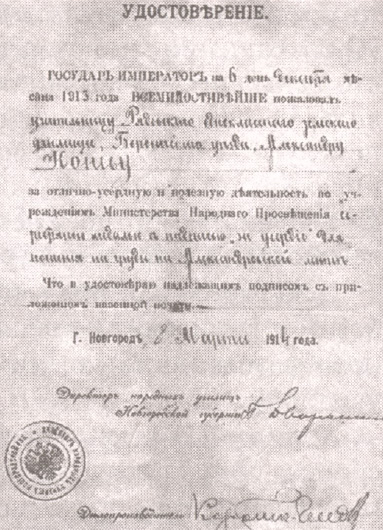 УДОСТОВѢРЕНІЕ.
ГОСУДАРЬ ИМПЕРАТОРЪ на 6 день Декабря мѣ-
сяца 1913 года ВСЕМИЛОСТИВѢЙШЕ пожаловалъ
учительницу земскаго
училища, уѣзда, Александру
за отлично-усердную и полезную дѣятельность по уч-
режденіямъ Министерства Народнаго Просвѣщенія се-
ребряною медалью съ надписью „за усердіе“ для
ношенія на груди на Александровской лентѣ
Что и удостовѣряю надлежащимъ подписомъ съ при-
ложеніемъ казенной печати.
Г. Новгородъ, 8 Марта 1914 года.
Директоръ народныхъ училищъ
Новгородской губерніи
Дѣлопроизводитель